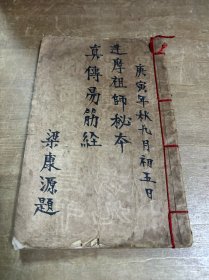 庚寅年秋九月初五日
達摩祖師秘本
真傳易筋経
梁康源題